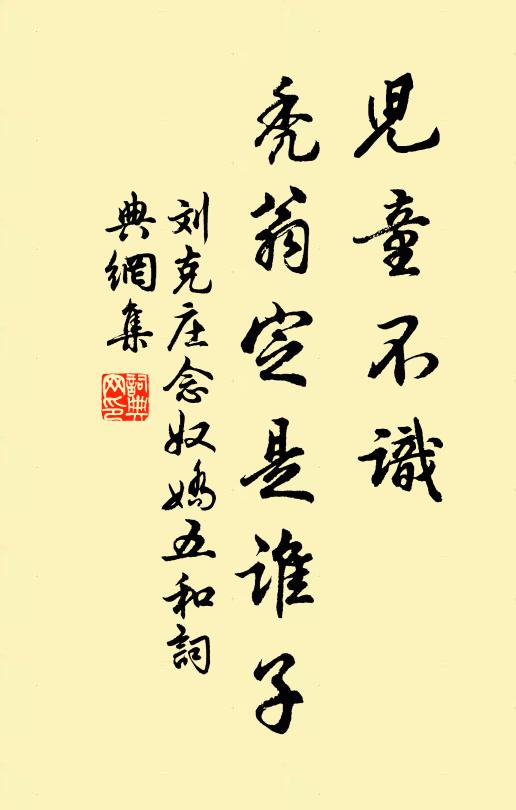 兒童不識
禿翁定是誰子
刘克庄念奴嬌五和詞
典網集
詞典網印